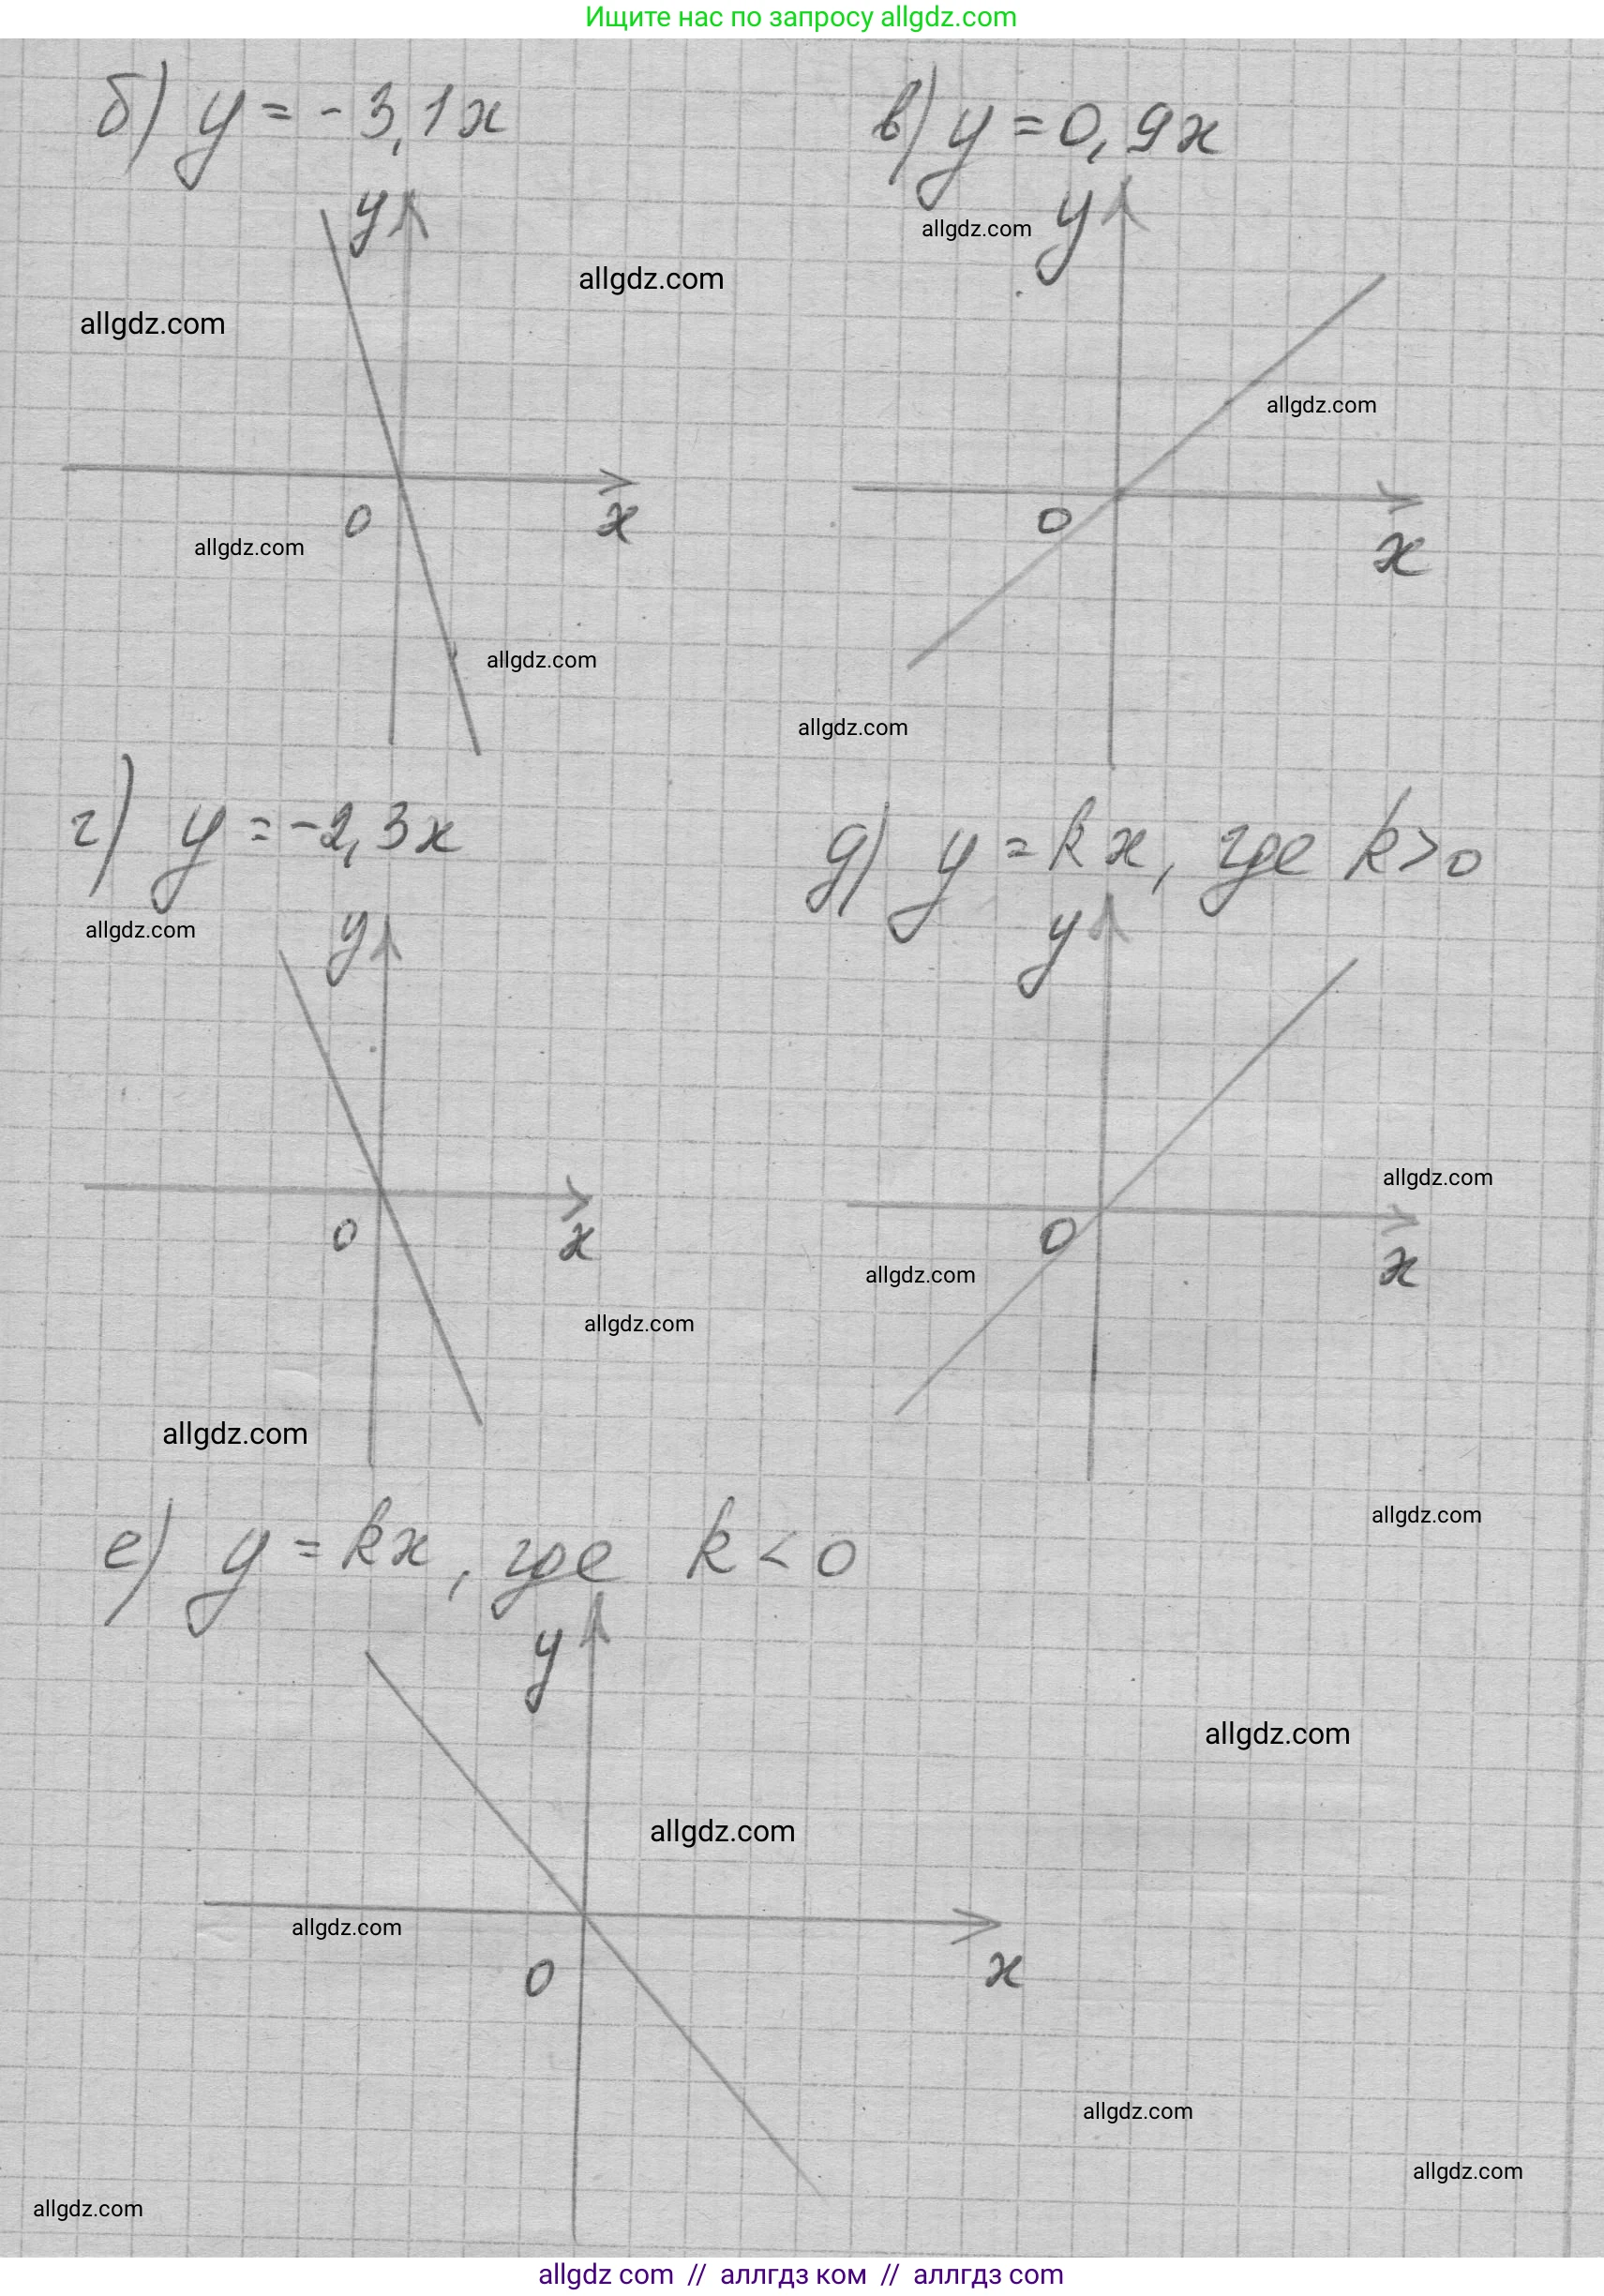 Ищите нас по запросу allgdz.com
б) y = -3,1x
в) y = 0,9x
y
y
allgdz.com
allgdz.com
allgdz.com
allgdz.com
0
x
0
x
allgdz.com
allgdz.com
allgdz.com
г) y = -2,3x
д) y = kx, где k>0
allgdz.com
y
y
allgdz.com
0
x
0
x
allgdz.com
allgdz.com
allgdz.com
allgdz.com
е) y = kx, где k < 0
y
allgdz.com
allgdz.com
allgdz.com
0
x
allgdz.com
allgdz.com
allgdz.com
allgdz com // аллгдз ком // аллгдз com